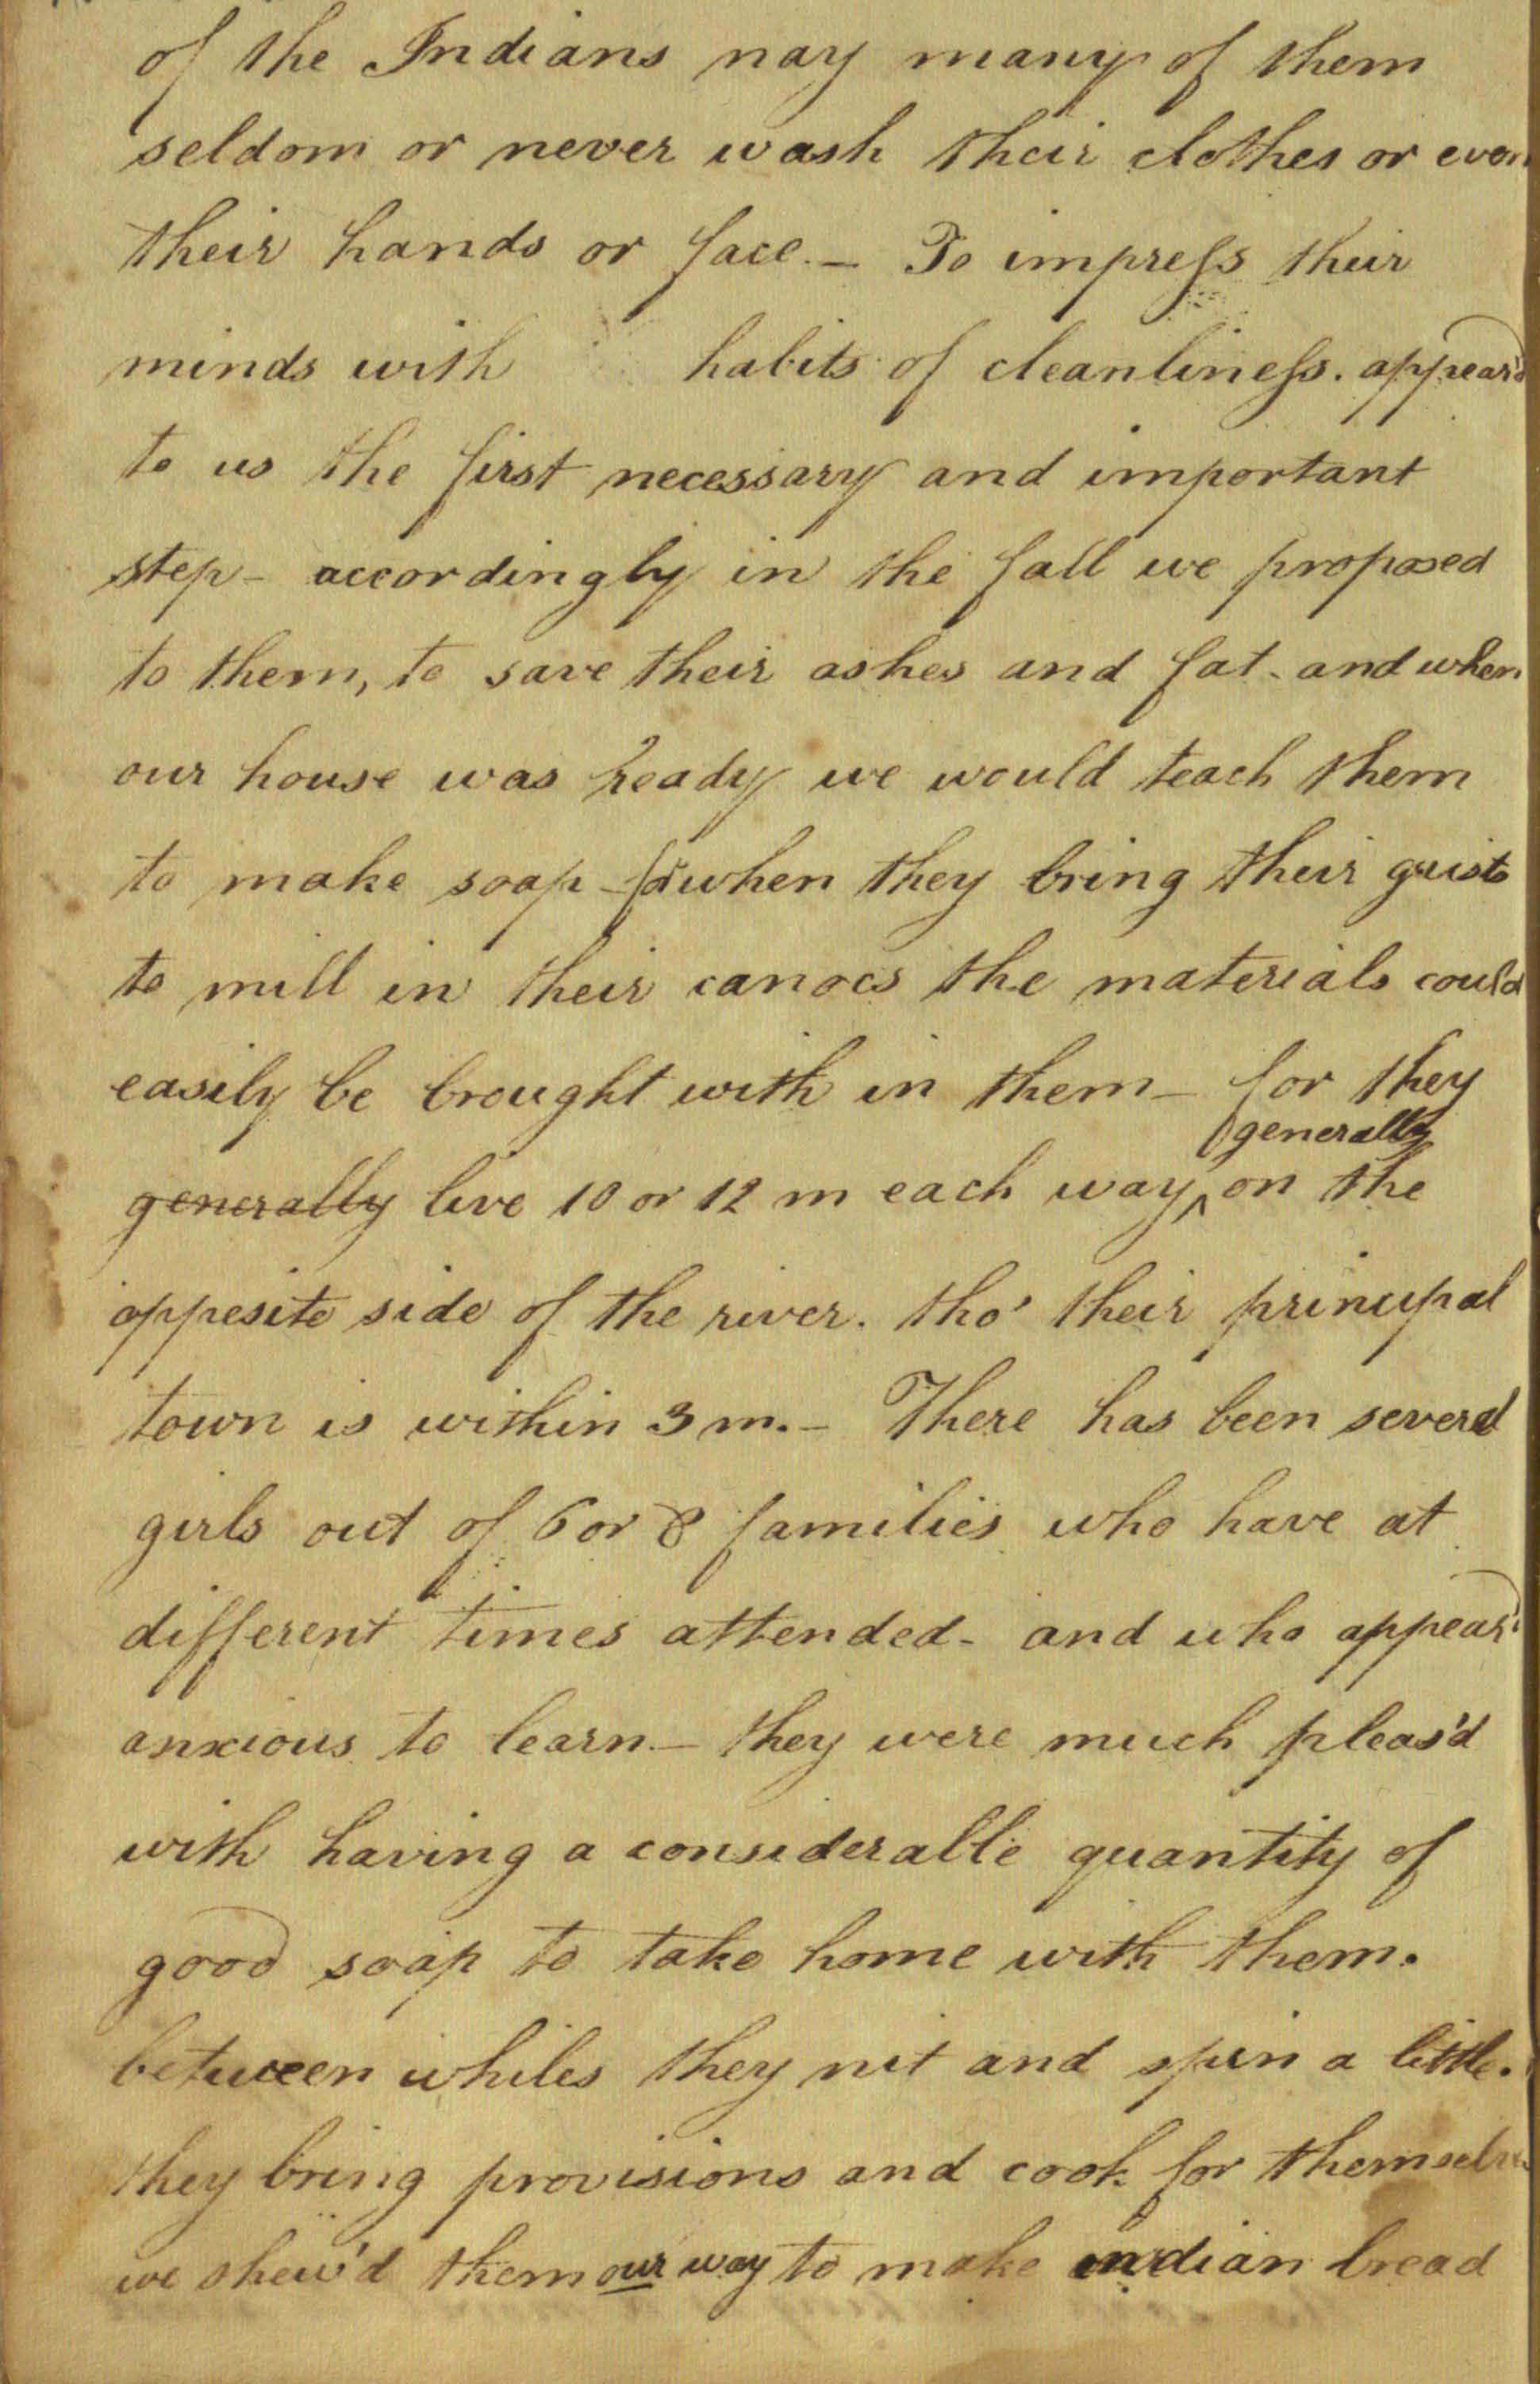 of the Indians nay many of them
seldom or never wash their clothes or even
their hands or face. – To impress their
minds with habits of cleanliness. appear'd
to us the first necessary and important
step – accordingly in the fall we proposed
to them, to save their ashes and fat – and when
our house was ready we would teach them
to make soap – for when they bring their grists
to mill in their canoes the materials could
easily be brought with in them – for they
generally
generally live 10 or 12 m each way ‸ on the
oppesite side of the river. tho' their principal
town is within 3 m. – There has been several
girls out of 6 or 8 families who have at
different times attended – and who appear'd
anxious to learn – they were much pleas'd
with having a considerable quantity of
good soap to take home with them.
between whiles they nit and spin a little.
they bring provisions and cook for themselves
we shew'd them our way to make indian bread